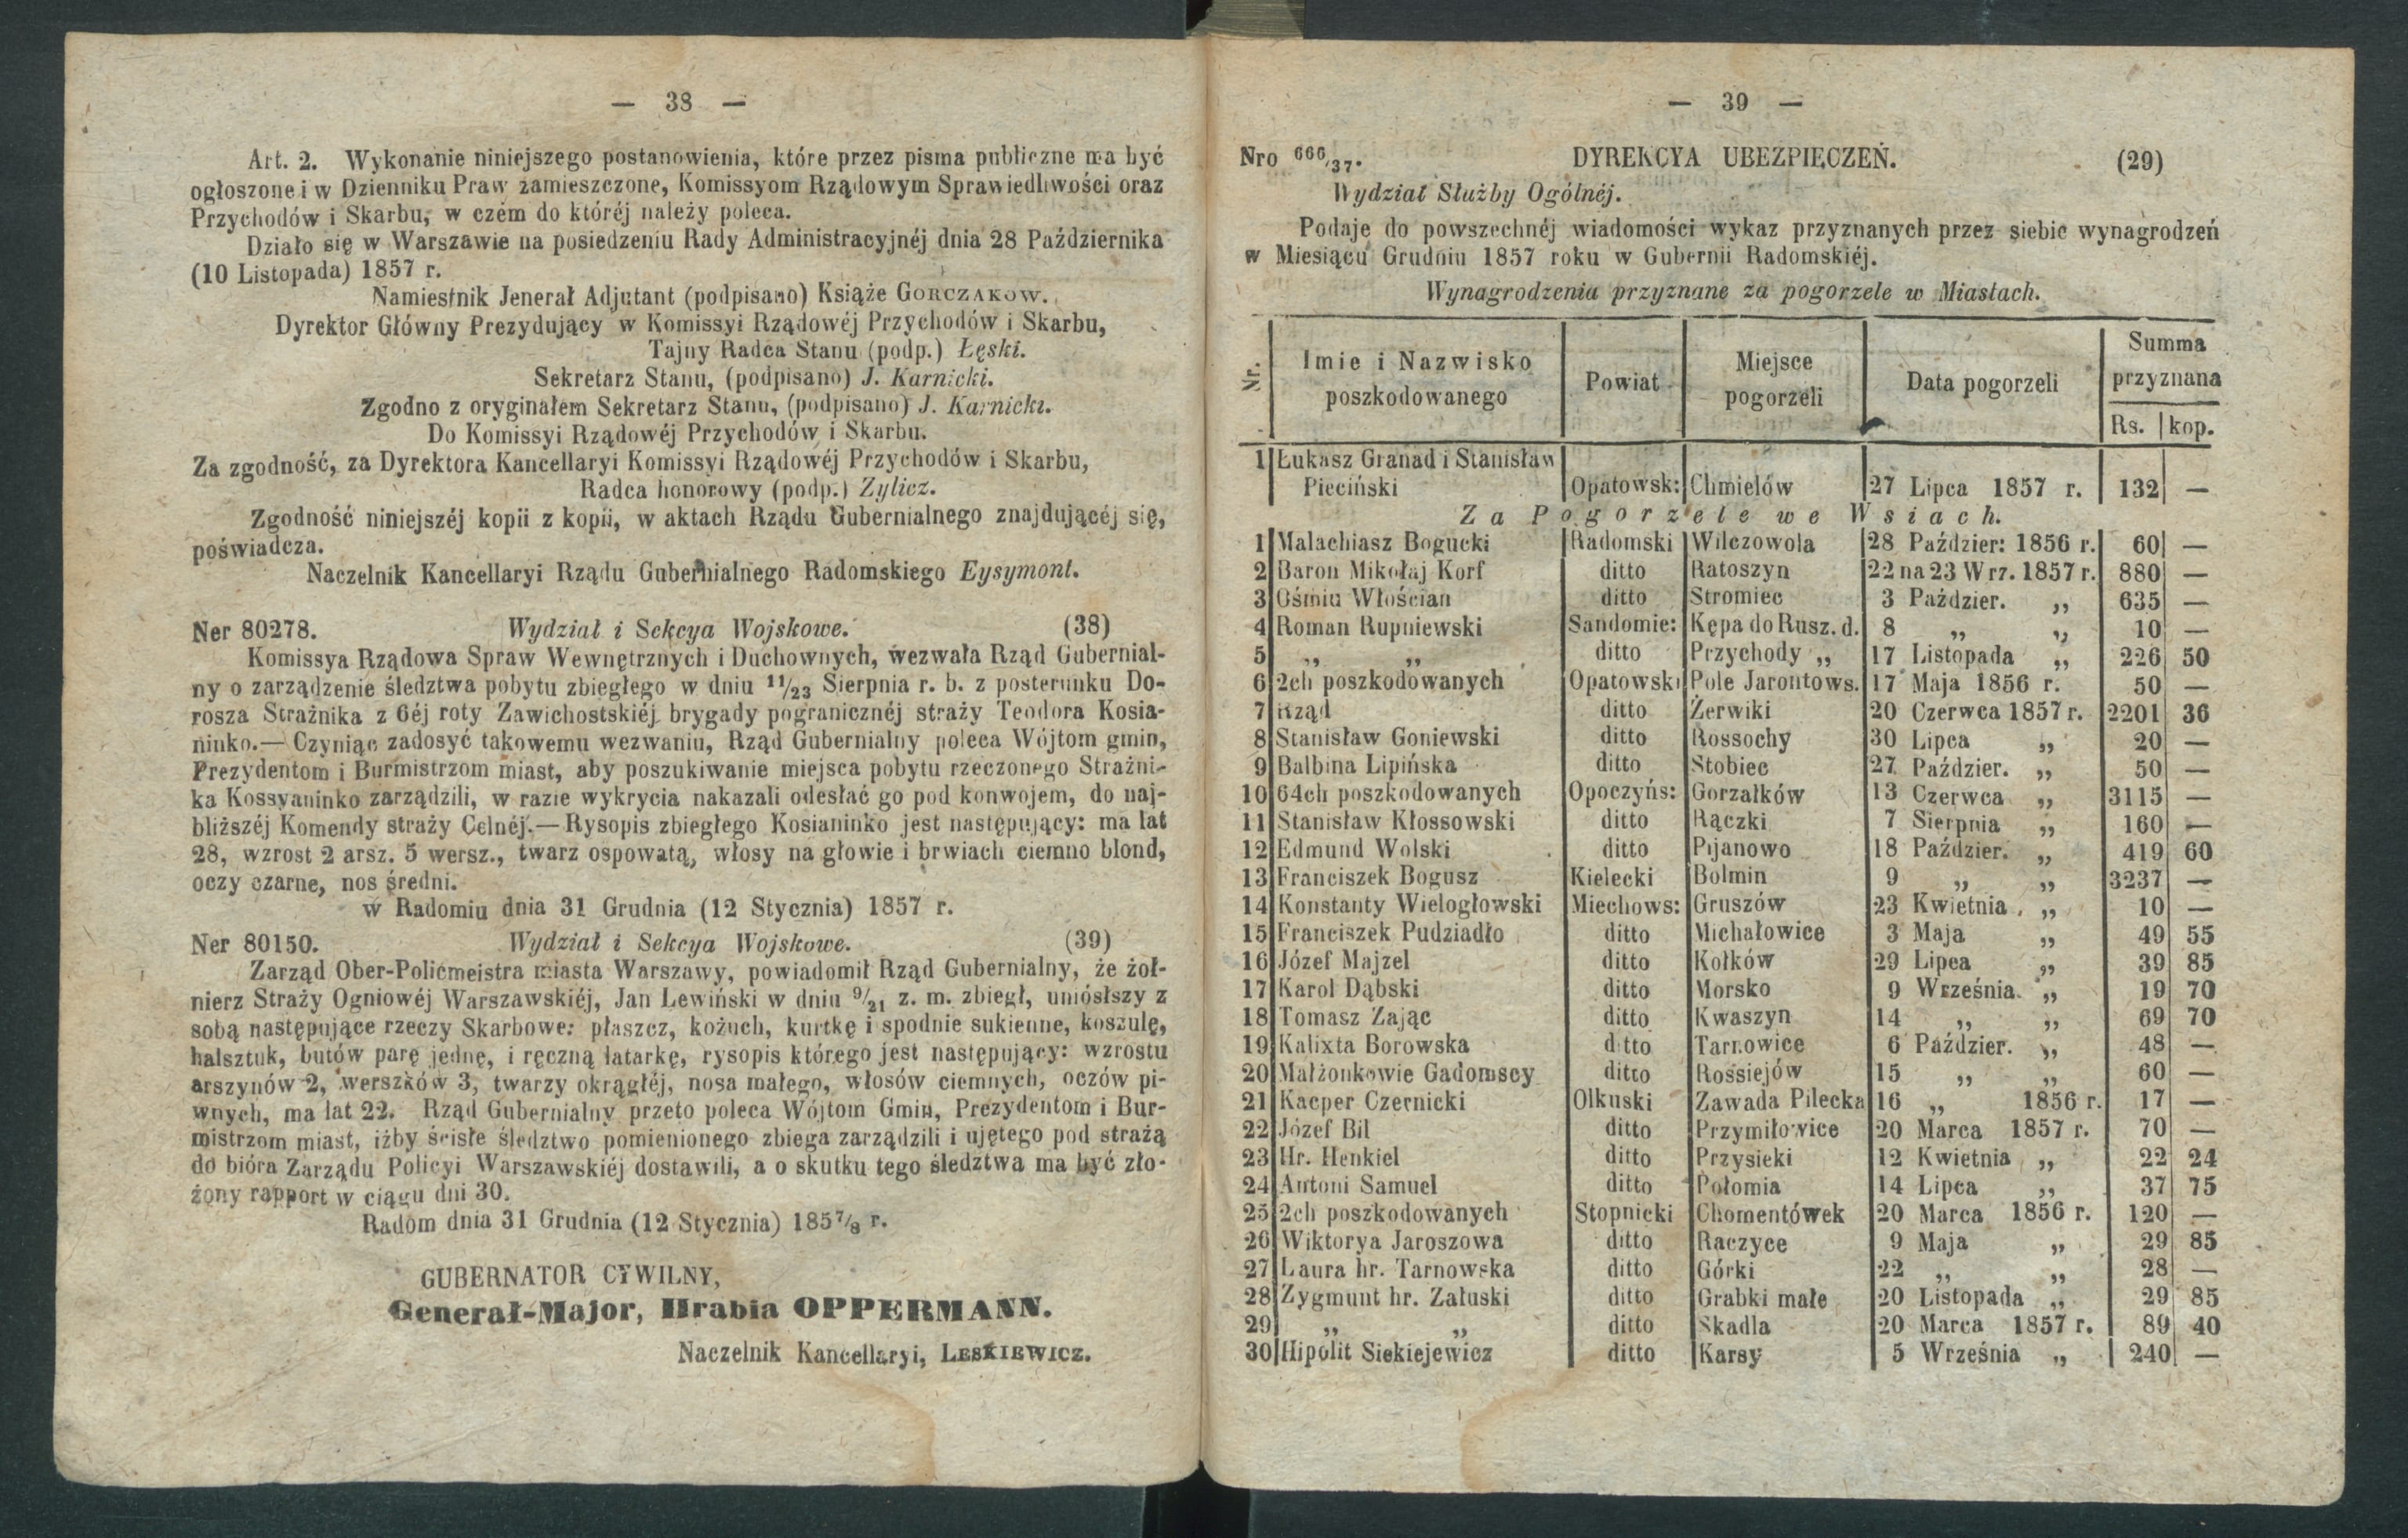 — 38 —
Art. 2. Wykonanie niniejszego postanowienia, które przez pisma publiczne ma być
ogłoszone i w Dzienniku Praw zamieszczone, Komissyom Rządowym Sprawiedliwości oraz
Przychodów i Skarbu, w czém do któréj należy poleca.
Działo się w Warszawie na posiedzeniu Rady Administracyjnéj dnia 28 Października
(10 Listopada) 1857 r.
Namiestnik Jenerał Adjutant (podpisano) Książe GORCZAKOW.
Dyrektor Główny Prezydujący w Komissyi Rządowéj Przychodów i Skarbu,
Tajny Radca Stanu (podp.) Łęski.
Sekretarz Stanu, (podpisano) J. Karnicki.
Zgodno z oryginałem Sekretarz Stanu, (podpisano) J. Karnicki.
Do Komissyi Rządowéj Przychodów i Skarbu.
Za zgodność, za Dyrektora Kancellaryi Komissyi Rządowéj Przychodów i Skarbu,
Radca honorowy (podp.) Zylicz.
Zgodność niniejszéj kopii z kopii, w aktach Rządu Gubernialnego znajdującéj się,
poświadcza.
Naczelnik Kancellaryi Rządu Gubernialnego Radomskiego Eysymont.
Ner 80278. Wydział i Sekcya Wojskowe. (38)
Komissya Rządowa Spraw Wewnętrznych i Duchownych, wezwała Rząd Gubernial-
ny o zarządzenie śledztwa pobytu zbiegłego w dniu 11/23 Sierpnia r. b. z posterunku Do-
rosza Strażnika z 6éj roty Zawichostskiéj brygady pogranicznéj straży Teodora Kosia-
ninko.— Czyniąc zadosyć takowemu wezwaniu, Rząd Gubernialny poleca Wójtom gmin,
Prezydentom i Burmistrzom miast, aby poszukiwanie miejsca pobytu rzeczonego Strażni-
ka Kossyaninko zarządzili, w razie wykrycia nakazali odesłać go pod konwojem, do naj-
bliższéj Komendy straży Celnéj.— Rysopis zbiegłego Kosianinko jest następujący: ma lat
28, wzrost 2 arsz. 5 wersz., twarz ospowatą, włosy na głowie i brwiach ciemno blond,
oczy czarne, nos średni.
w Radomiu dnia 31 Grudnia (12 Stycznia) 1857 r.
Ner 80150. Wydział i Sekcya Wojskowe. (39)
Zarząd Ober-Policmeistra miasta Warszawy, powiadomił Rząd Gubernialny, że żoł-
nierz Straży Ogniowéj Warszawskiéj, Jan Lewiński w dniu 9/21 z. m. zbiegł, uniósłszy z
sobą następujące rzeczy Skarbowe: płaszcz, kożuch, kurtkę i spodnie sukienne, koszulę,
halsztuk, butów parę jednę, i ręczną latarkę, rysopis którego jest następujący: wzrostu
arszynów 2, werszków 3, twarzy okrągłéj, nosa małego, włosów ciemnych, oczów pi-
wnych, ma lat 22. Rząd Gubernialny przeto poleca Wójtom Gmin, Prezydentom i Bur-
mistrzom miast, iżby ścisłe śledztwo pomienionego zbiega zarządzili i ujętego pod strażą
do bióra Zarządu Policyi Warszawskiéj dostawili, a o skutku tego śledztwa ma być zło-
żony rapport w ciągu dni 30.
Radom dnia 31 Grudnia (12 Stycznia) 1857/8 r.
GUBERNATOR CYWILNY,
Generał-Major, Hrabia OPPERMANN.
Naczelnik Kancellaryi, LESKIEWICZ.
— 39 —
Nro 666/37. DYREKCYA UBEZPIECZEŃ. (29)
Wydział Służby Ogólnéj.
Podaje do powszechnéj wiadomości wykaz przyznanych przez siebie wynagrodzeń
w Miesiącu Grudniu 1857 roku w Gubernii Radomskiéj.
Wynagrodzenia przyznane za pogorzele w Miastach.
Nr. Imie i Nazwisko poszkodowanego Powiat Miejsce pogorzeli Data pogorzeli Summa przyznana Rs. kop.
1 Łukasz Granad i Stanisław
Pieciński Opatowsk: Chmielów 27 Lipca 1857 r. 132 —
Za Pogorzele we Wsiach.
1 Malachiasz Bogucki Radomski Wilczowola 28 Paździer: 1856 r. 60 —
2 Baron Mikołaj Korf ditto Ratoszyn 22 na 23 Wrz. 1857 r. 880 —
3 Ośmiu Włościan ditto Stromiec 3 Paździer. „ 635 —
4 Roman Rupniewski Sandomie: Kępa do Rusz. d. 8 „ „ 10 —
5 „ „ ditto Przychody „ 17 Listopada „ 226 50
6 2ch poszkodowanych Opatowski Pole Jarontows. 17 Maja 1856 r. 50 —
7 Rząd ditto Żerwiki 20 Czerwca 1857 r. 2201 36
8 Stanisław Goniewski ditto Rossochy 30 Lipca „ 20 —
9 Balbina Lipińska ditto Stobiec 27 Paździer. „ 50 —
10 64ch poszkodowanych Opoczyńs: Gorzałków 13 Czerwca „ 3115 —
11 Stanisław Kłossowski ditto Rączki 7 Sierpnia „ 160 —
12 Edmund Wolski ditto Pijanowo 18 Paździer. „ 419 60
13 Franciszek Bogusz Kielecki Bolmin 9 „ „ 3237 —
14 Konstanty Wielogłowski Miechows: Gruszów 23 Kwietnia „ 10 —
15 Franciszek Pudziadło ditto Michałowice 3 Maja „ 49 55
16 Józef Majzel ditto Kołków 29 Lipca „ 39 85
17 Karol Dąbski ditto Morsko 9 Września „ 19 70
18 Tomasz Zając ditto Kwaszyn 14 „ „ 69 70
19 Kalixta Borowska ditto Tarnowice 6 Paździer. „ 48 —
20 Małżonkowie Gadomscy ditto Rossiejów 15 „ „ 60 —
21 Kacper Czernicki Olkuski Zawada Pilecka 16 „ 1856 r. 17 —
22 Józef Bil ditto Przymiłowice 20 Marca 1857 r. 70 —
23 Hr. Henkiel ditto Przysieki 12 Kwietnia „ 22 24
24 Antoni Samuel ditto Połomia 14 Lipca „ 37 75
25 2ch poszkodowanych Stopnicki Chomentówek 20 Marca 1856 r. 120 —
26 Wiktorya Jaroszowa ditto Raczyce 9 Maja „ 29 85
27 Laura hr. Tarnowska ditto Górki 22 „ „ 28 —
28 Zygmunt hr. Załuski ditto Grabki małe 20 Listopada „ 29 85
29 „ „ ditto Skadla 20 Marca 1857 r. 89 40
30 Hipolit Siekiejewicz ditto Karsy 5 Września „ 240 —